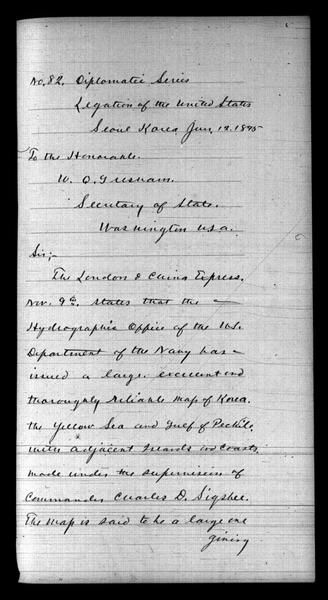 No. 82. Diplomatic Series
Legation of the United States
Seoul Korea Jan. 12. 1895
To the Honorable.
W. Q. Gresham.
Secretary of State.
Washington U.S.a.
Sir;-
The London & China Express.
Nov. 9th. states that the
Hydrographic Office of the U.S.
Department of the Navy has
issued a large. excellent and
thoroughly reliable map of Korea.
the Yellow Sea and Gulf of Pechile
with adjacent Islands and Coasts.
made under the supervision of
Commander Charles D. Sigsbee.
The map is said to be a large one
giving